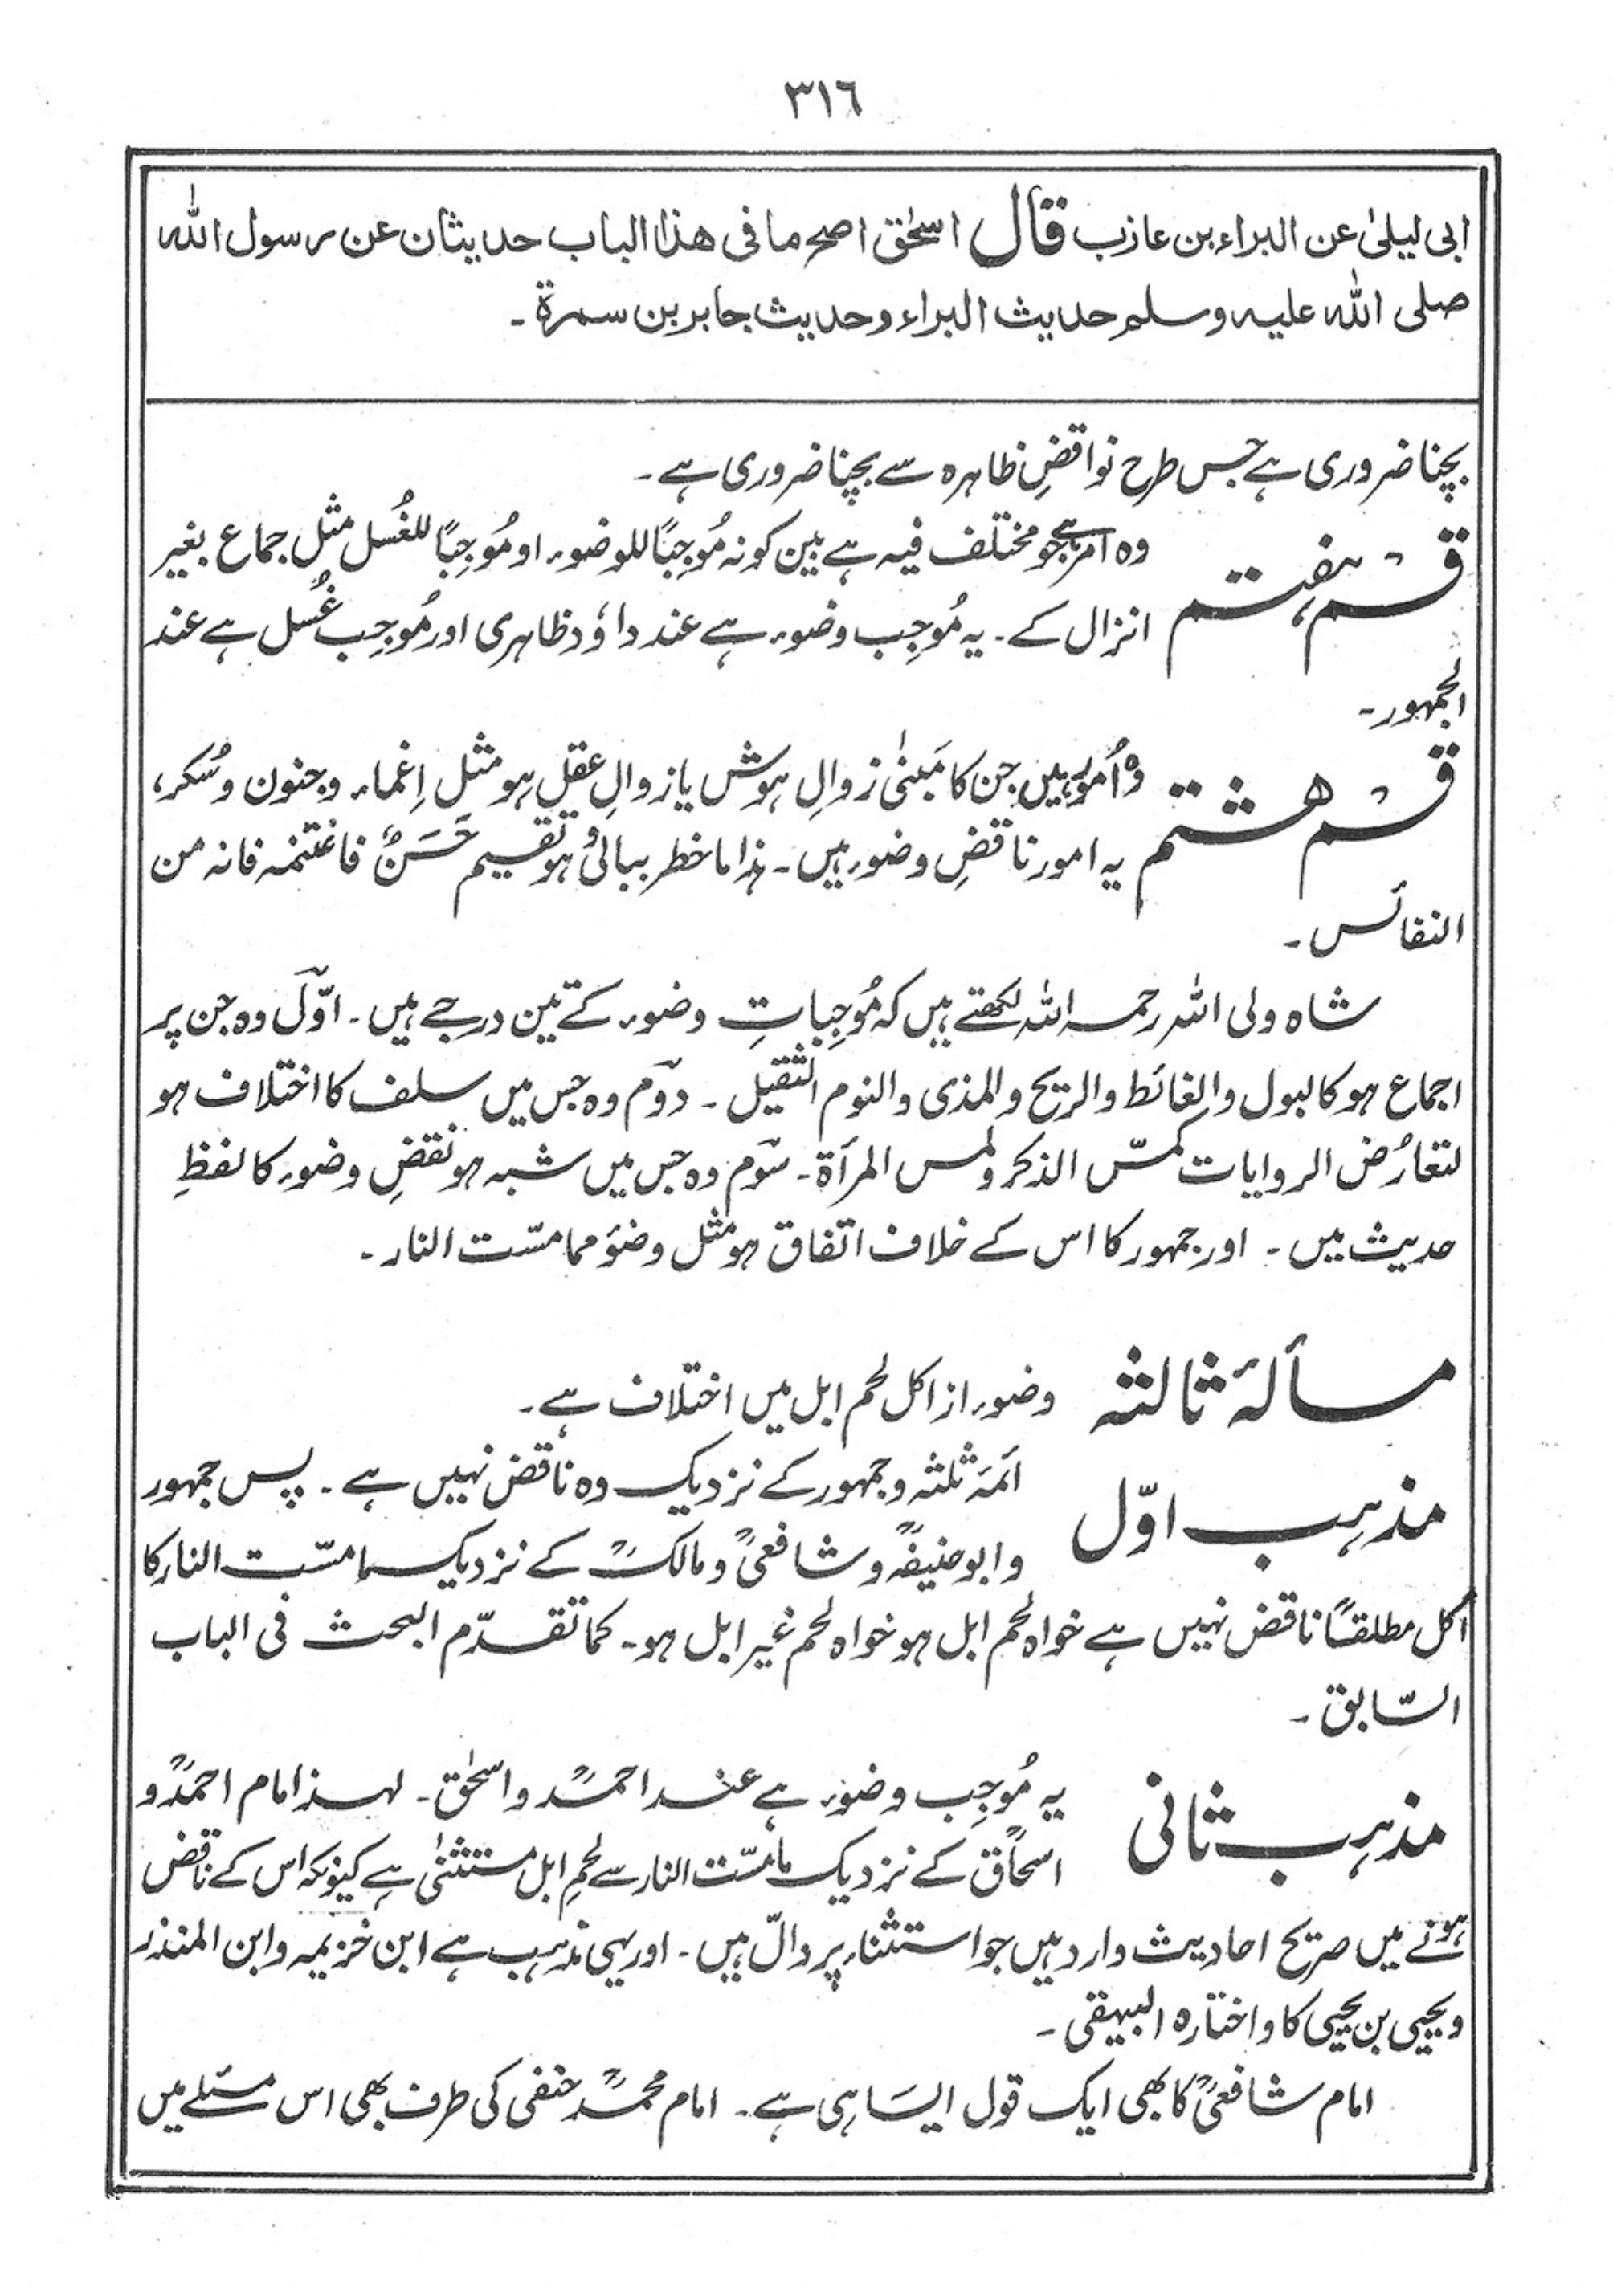 ٣١٦
ابی لیلیٰ عن البراء بن عازب قال اسحٰق اصح ما فی هذا الباب حدیثان عن رسول الله
صلی الله علیه وسلم حدیث البراء وحدیث جابر بن سمرة ۔
بچنا ضروری ہے جس طرح نواقضِ ظاہرہ سے بچنا ضروری ہے ۔
قسم ہفتم وہ امر ہے جو مختلف فیہ ہے بین کونہ مُوجِبًا للوضوء او مُوجِبًا للغُسل مثل جماع بغیر
انزال کے ۔ یہ مُوجِب وضوء ہے عند داؤد ظاہری اور مُوجِب غُسل ہے عند
الجمہور ۔
قسم ہشتم وہ اُمور ہیں جن کا مَبنیٰ زوالِ ہوش یا زوالِ عقل ہو مثل اِغماء و جنون و سُکر،
یہ امور ناقضِ وضوء ہیں ۔ ہٰذا ما خطر ببالی وہو تقسیم حَسَنٌ فاغتنمہ فانہ من
النفائس ۔
شاہ ولی اللہ رحمہ اللہ لکھتے ہیں کہ مُوجِباتِ وضوء کے تین درجے ہیں ۔ اوّل وہ جن پر
اجماع ہو کالبول والغائط والریح والمذی والنوم الثقیل ۔ دوم وہ جس میں سلف کا اختلاف ہو
لتعارُض الروایات کمسّ الذکر ولمس المرأة ۔ سوم وہ جس میں شبہ ہو نقضِ وضوء کا لفظِ
حدیث میں ۔ اور جمہور کا اس کے خلاف اتفاق ہو مثل وضوٗ مما مسّت النار ۔
مسألۂ ثالثہ وضوء از اکل لحم ابل میں اختلاف ہے ۔
مذہب اوّل ائمۂ ثلٰثہ و جمہور کے نزدیک وہ ناقض نہیں ہے ۔ پس جمہور
و ابو حنیفہؒ و شافعیؒ و مالکؒ کے نزدیک ما مسّت النار کا
اکل مطلقًا ناقض نہیں ہے خواہ لحم ابل ہو خواہ لحم غیر ابل ہو ۔ کما تقدّم البحث فی الباب
السّابق ۔
مذہب ثانی یہ مُوجِب وضوء ہے عند احمدؒ و اسحٰق ۔ لہذا امام احمدؒ و
اسحاقؒ کے نزدیک ما مسّت النار سے لحمِ ابل مستثنیٰ ہے کیونکہ اس کے ناقض
ہونے میں صریح احادیث وارد ہیں جو استثناء پر دالّ ہیں ۔ اور یہی مذہب ہے ابن خزیمہ و ابن المنذر
و یحییٰ بن یحییٰ کا و اختارہ البیہقی ۔
امام شافعیؒ کا بھی ایک قول ایسا ہی ہے ۔ امام محمدؒ حنفی کی طرف بھی اس مسئلے میں